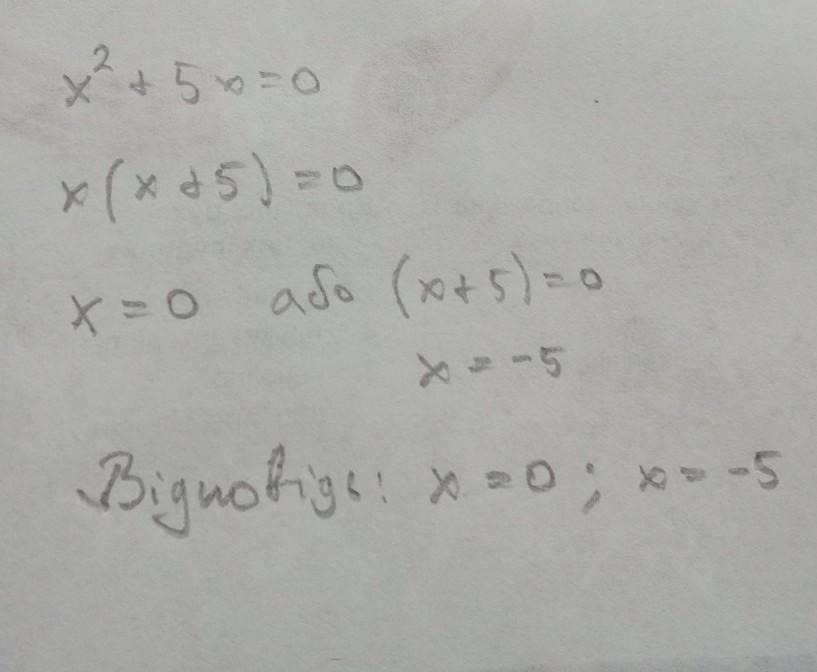 x² + 5x = 0
x(x + 5) = 0
x = 0 або (x + 5) = 0
x = -5
Відповідь: x = 0; x = -5